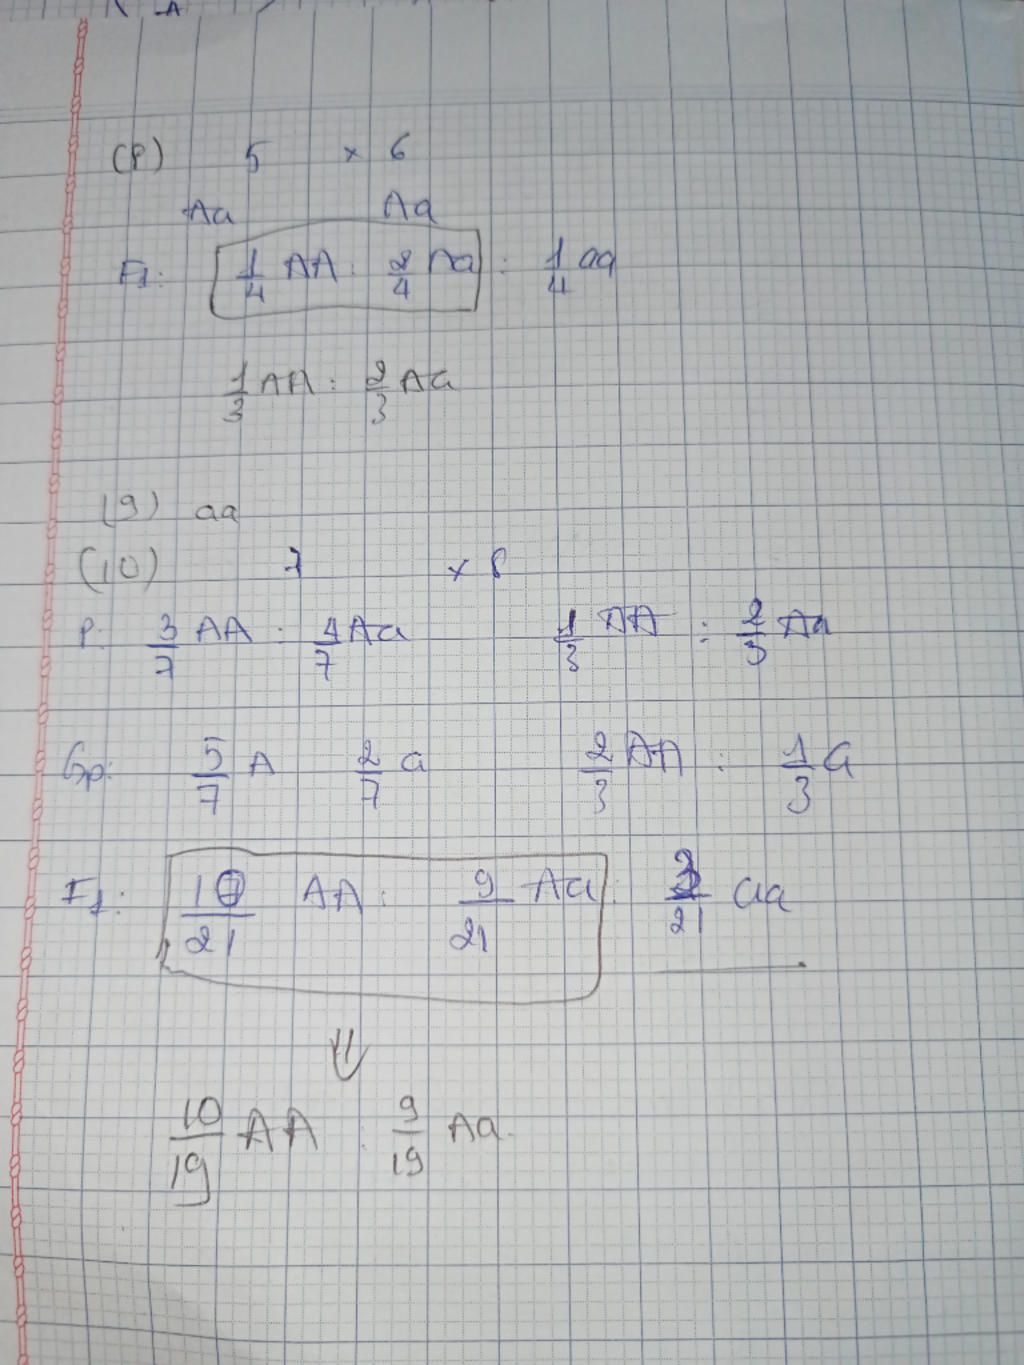 (8) 5 × 6
Aa Aa
F1: 1/4 AA : 2/4 Aa : 1/4 aa
1/3 AA : 2/3 Aa
(9) aa
(10) 7 × 8
P: 3/7 AA : 4/7 Aa 1/3 AA : 2/3 Aa
Gp: 5/7 A 2/7 a 2/3 AA : 1/3 a
F1: 10/21 AA : 9/21 Aa : 2/21 aa
⇓
10/19 AA : 9/19 Aa.